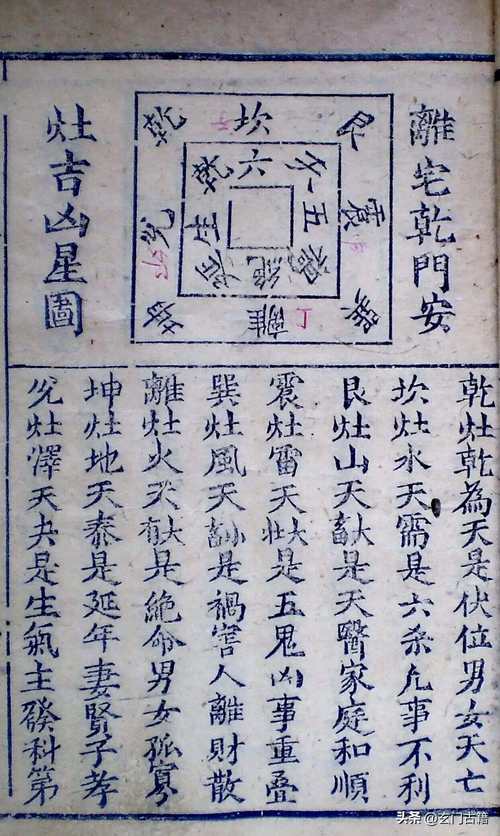 離宅乾門安
灶吉凶星圖
乾 坎 艮
震
巽
離
坤
兌
六
天
五
禍
絕
延
生
丁
乾灶乾為天是伏位男女夭亡
坎灶水天需是六杀凢事不利
艮灶山天大畜是天醫家庭和順
震灶雷天大壯是五鬼凶事重叠
巽灶風天小畜是禍害人離財散
離灶火天大有是絕命男女孤寡
坤灶地天泰是延年妻賢子孝
兌灶澤天夬是生氣主發科第
头条 @玄门古籍